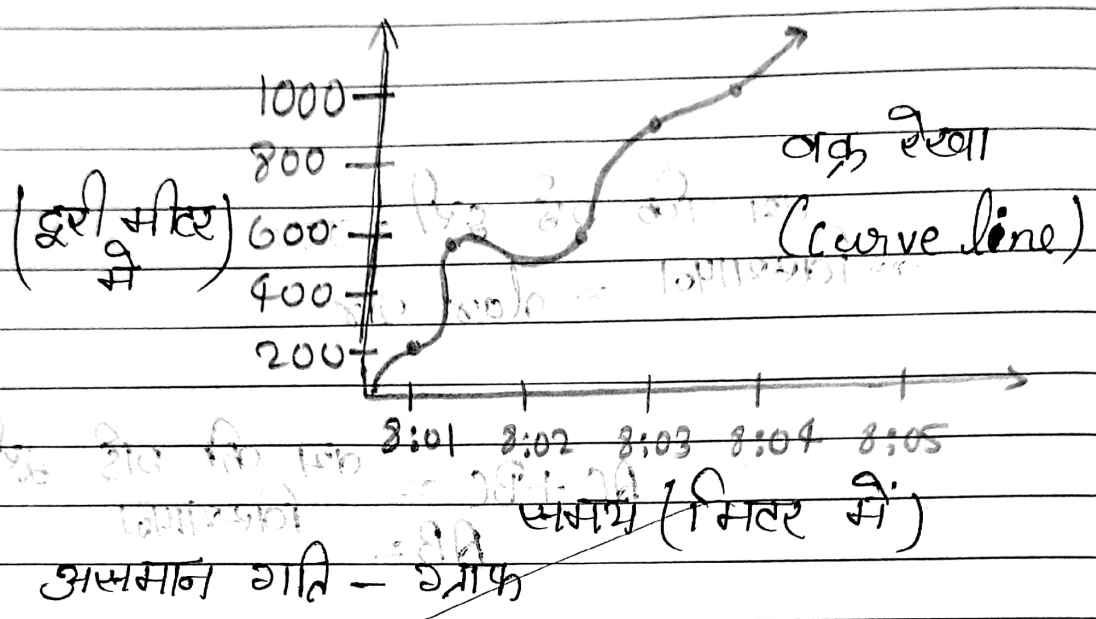 1000
800
(दूरी मीटर में)
600
400
200
वक्र रेखा
(curve line)
8:01 8:02 8:03 8:04 8:05
समय (मिटर में)
असमान गति - ग्राफ